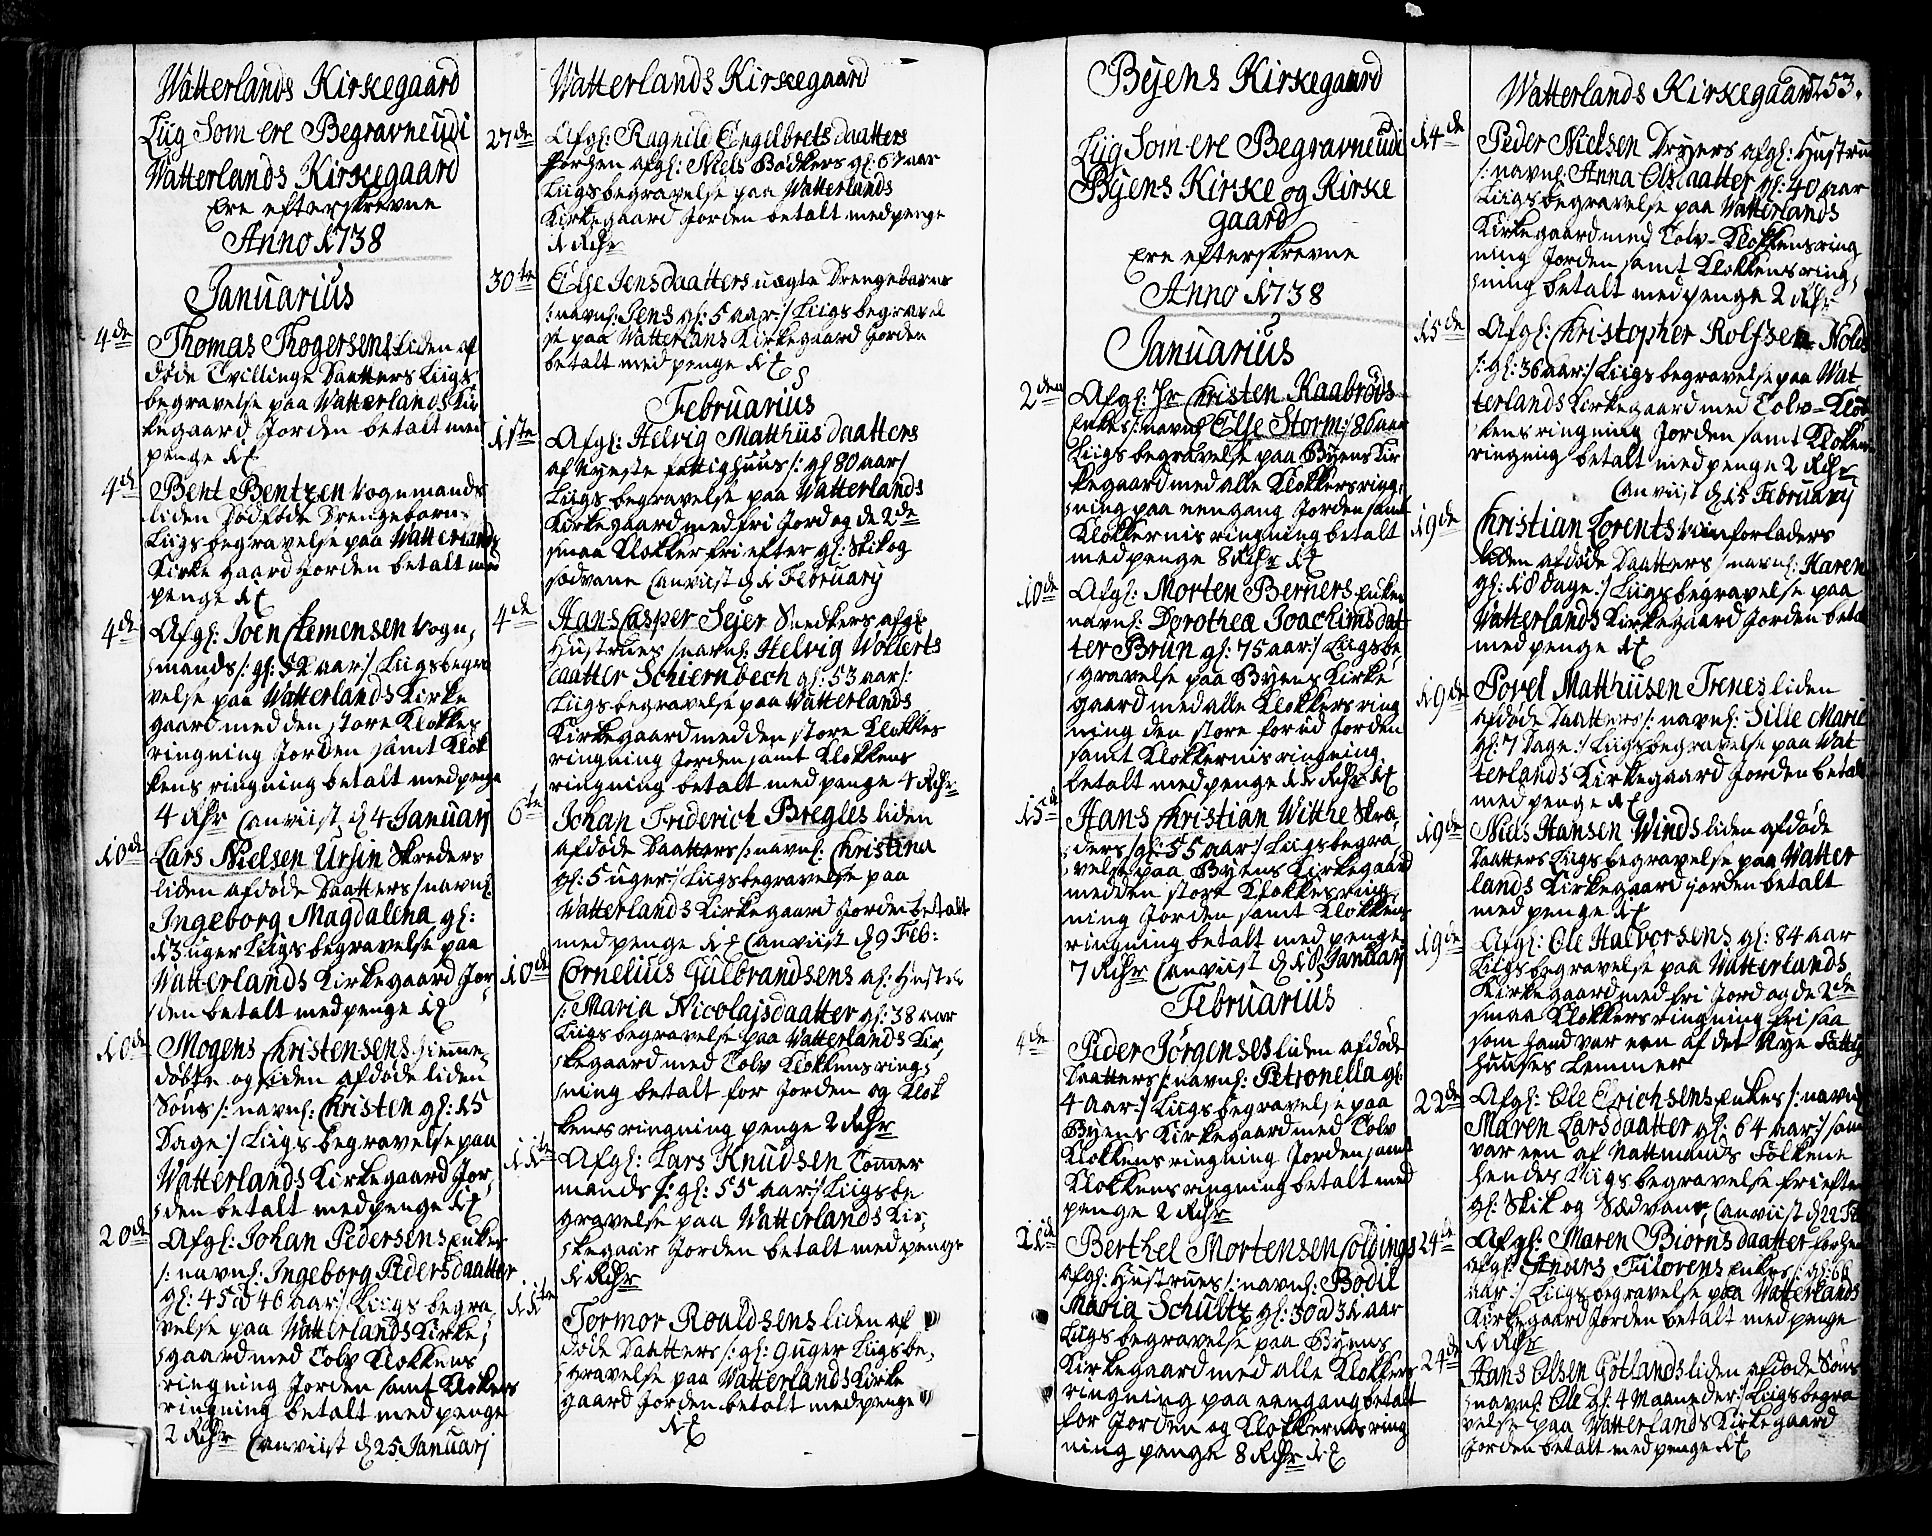 Watterlands Kirkegaard
Liig Som ere Begravne udi
Watterlands Kirkegaard
Ere efterskrevne
Anno 1738
Januarius
4de Thomas Thogersens liden af
døde Tvillinge Daatters Liigs
begravelse paa Watterlands Kir
kegaard Jorden betalt med
penge
4de Bent Bentzen Vognmands
liden Dødføde Drengebarns
Liigsbegravelse paa Watterlands
Kirke gaard Jorden betalt med
penge
4de Afgl: Joen Clemensen Vogn,
mands /: gl: 52 aar :/ Liigsbegra
velse paa Watterlands Kirke
gaard med den store Klokkes
ringning Jorden samt Klok
kens ringning betalt med penge
4 Rdr Canviist d 4 Januarj
10de Lars Nielsen Ursin Skreders
liden afdøde Daatters /: navnl
Ingeborg Magdalena gl:
13 uger Liigsbegravelse paa
Watterlands Kirkegaard Jor,
den betalt med penge
10de Mogens Christensens hiemme,
døbte og liden afdøde liden
Søns /: navnl: Christen gl: 15
Dage :/ Liigsbegravelse paa
Watterlands Kirkegaard Jor,
den betalt med penge
20de Afgl: Johan Pedersens Enkes
/: navnl: Ingeborg Pedersdaatter
gl: 45 a 46 aar :/ Liigs begra,
velse paa Watterlands Kirke,
gaard med Tolv Klokkens
ringning Jorden samt Klokens
ringning betalt med penge
2 Rdr Canviist d 25 Januarj
Watterlands Kirkegaard
27de Afgl: Ragnild Engelbretsdaatters
forhen afgl: Niels Bødkers gl: 67 aar
Liigsbegravelse paa Watterlands
Kirkegaard Jorden betalt med penge
1 Rdr
30te Else Jensdaatters uægte Drengebarns
/: navnl: Jens gl: 5 aar :/ Liigsbegravel
se paa Watterlans Kirkegaard Jorden
betalt med penge
Februarius
1ste Afgl: Helvig Matthiisdaatters
af Nyeste fattighuus /: gl 80 aar /
Liigs begravelse paa Watterlands
Kirkegaard med fri Jord og de 2de
smaa Klokker fri efter gl: Skik og
sædvane Canviist d 1 February
4de Hans Casper Sejer Snedkers afgl:
Hustrues /: navnl: Helvig Wollerts
daatter Schiernbech gl: 53 aar /:
Liigsbegravelse paa Watterlands
Kirkegaard med den store Klokkes
ringning Jorden samt Klokkens
ringning betalt med penge 4 Rdr
6te Johan Friderich Bregles liden
afdøde Daatters /: navnl: Christina
gl: 5 uger :/ Liigsbegravelse paa
Watterlands Kirkegaard Jorden betalt
med penge Canviist d 9 Feb:
10de Cornelius Gulbrandsens af: Hustr:
/: Maria Nicolajsdaatter gl: 38 aar
Liigsbegravelse paa Watterlands Kir,
kegaard med Tolv Klokkens ring,
ning betalt for Jorden og Klok
kens ringning penge 2 Rdr
11te Afgl: Lars Knudsen Tømmer
mands /: gl: 55 aar :/ Liigsbe
gravelse paa Watterlands Kir,
kegaar Jorden betalt med penge
1 Rdr
11te Tormor Roaldsens liden af
døde Daatters /: gl: 9 uger Liigsbe,
gravelse paa Watterlands Kirke
gaard Jorden betalt med penge
Byens Kirkegaard
Liig Som ere Begravne udi
Byens Kirke og Kirke
gaard
Ere efterskrevne
Anno 1738
Januarius
2den Afgl: Hr Christen Kaabrøds
Enkes /: navnl Else Storm :/ 86 aar
Liigs begravelse paa Byens Kir
kegaard med alle Klokkers ring,
ning paa eengang Jorden samt
Klokkernis ringning betalt
med penge 8 Rdr
10de Afgl: Morten Berners Enkes
navnl: Dorothea Joachimsdat
ter Brun gl: 75 aar :/ Liigsbe,
gravelse paa Byens Kirke
gaard med alle Klokkers ring
ning den store forud Jorden
samt Klokkernis ringning
betalt med penge 12 Rdr
15de Hans Christian Witthe Skræ,
ders /: gl: 55 aar :/ Liigsbegra,
velse paa Byens Kirkegaard
med den store Klokkes ring,
ning Jorden samt Klokkens
ringning betalt med penge
7 Rdr Canviist d 18 Januarj
Februarius
4de Peder Jørgenses liden afdøde
Daatters /: navnl: Petronella gl:
4 aar :/ Liigsbegravelse paa
Byens Kirkegaard med Tolv
Klokkens ringning Jorden samt
Klokkens ringning betalt med
penge 2 Rdr
11de Berthel Mortensen Soldings
afgl: Hustrues /: navnl: Bodil
Maria Schultz gl: 30 a 31 aar
Liigsbegravelse paa Byens
Kirkegaard med alle Klokkers
ringning paa eengang betalt
for Jorden og Klokkernis ring
ning penge 8 Rdr
Watterlands Kirkegaard 253.
14de Peder Nielsen Dryers afgl: Hustrue
/: navnl: Anna Olsdaatter gl: 40 aar
Liigsbegravelse paa Watterlands
Kirkegaard med Tolv-Klokkens ring
ning Jorden samt Klokkens ring,
ning betalt med penge 2 Rdr
15de Afgl: Christopher Rolfsen Holds
/: gl: 36 aar :/ Liigsbegravelse paa Wat-
terlands Kirkegaard med Tolv-Klok
kens ringning Jorden samt Klokens
ringning betalt med penge 2 Rdr
Canviist d 15 February
19de Christian Lorents Viinforladers
liden afdøde Daatters /: navnl: Karen
gl: 18 dage :/ Liigsbegravelse paa
Watterlands Kirkegaard Jorden betalt
med penge
19de Povel Matthiisen Trenes liden
afdøde Daatters /: navnl: Silie Marie
gl: 7 Dage :/ Liigsbegravelse paa Wat-
terlands Kirkegaard Jorden betalt
med penge
19de Niels Hansen Winds liden afdøde
Daatters Liigsbegravelse paa Watter
lands Kirkegaard jorden betalt
med penge
19de Afgl: Ole Halvorsens gl: 84 aar
Liigsbegravelse paa Watterlands
Kirkegaard med fri Jord og de 2de
smaa Klokkers ringning fri saa
som hand var een af det Nye Fattig
huuses Lemmer
22de Afgl: Ole Erichsens Enkes /: navnl
Maren Larsdaatter gl: 64 aar :/ som
var een af Natmands Folkene
hendes Liigsbegravelse fri efter
gl: Skik og Sædvane, Canviist d 22 Feb
24de Afgl: Maren Biørnsdaatter forhen
afgl: Anders Enkes /: gl:
aar :/ Liigsbegravelse paa Watterlands
Kirkegaard Jorden betalt med penge
1 Rdr
24de Hans Olsen Gotlands liden afdøde Søns
navnl: Ole gl: 4 Maaneder :/ Liigsbegra
velse paa Watterlands Kirkegaard
Jorden betalt med penge